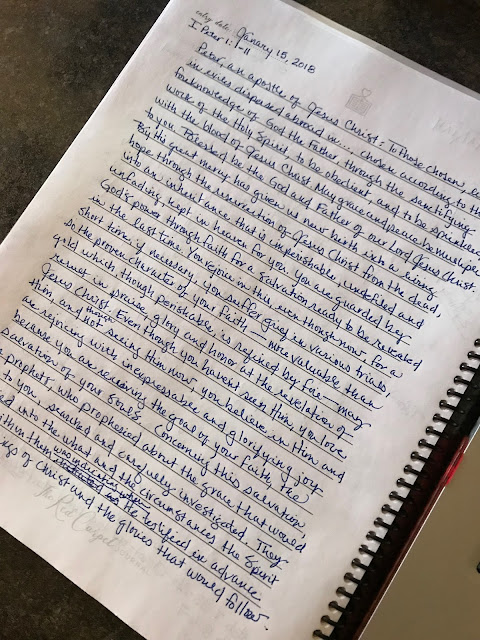 entry date: January 15, 2018
I Peter 1:1-11
Peter, an apostle of Jesus Christ: To those chosen,
in exiles dispersed abroad in.... chosen according to the
foreknowledge of God the Father, through the sanctifying
work of the Holy Spirit, to be obedient, and to be sprinkled
with the blood of Jesus Christ. May grace and peace be
to you. Blessed be the God and Father of our Lord Jesus Christ.
By His great mercy has given us new birth into a living
hope through the resurrection of Jesus Christ from the dead,
into an inheritance that is imperishable, undefiled and
unfading, kept in heaven for you. You are guarded by
God's power through faith for a salvation ready to be revealed
in the last time. You rejoice in this, even though now for a
short time, if necessary, you suffer grief in various trials,
so the proven character of your faith, — more valuable than
gold which though perishable is refined by fire — may
result in praise glory and honor at the revelation of
Jesus Christ. Even though you haven't seen Him, you love
Him, and though not seeing Him now, you believe in Him and
are rejoicing with inexpressable and glorifying joy
because you are receiving the goal of your faith, the
salvation of your souls. Concerning this salvation
prophets who prophesied about the grace that would
to you, searched and carefully investigated. They
into the what and the circumstances the Spirit
within them was indicating when He testified in advance
of Christ and the glories that would follow.
The Red